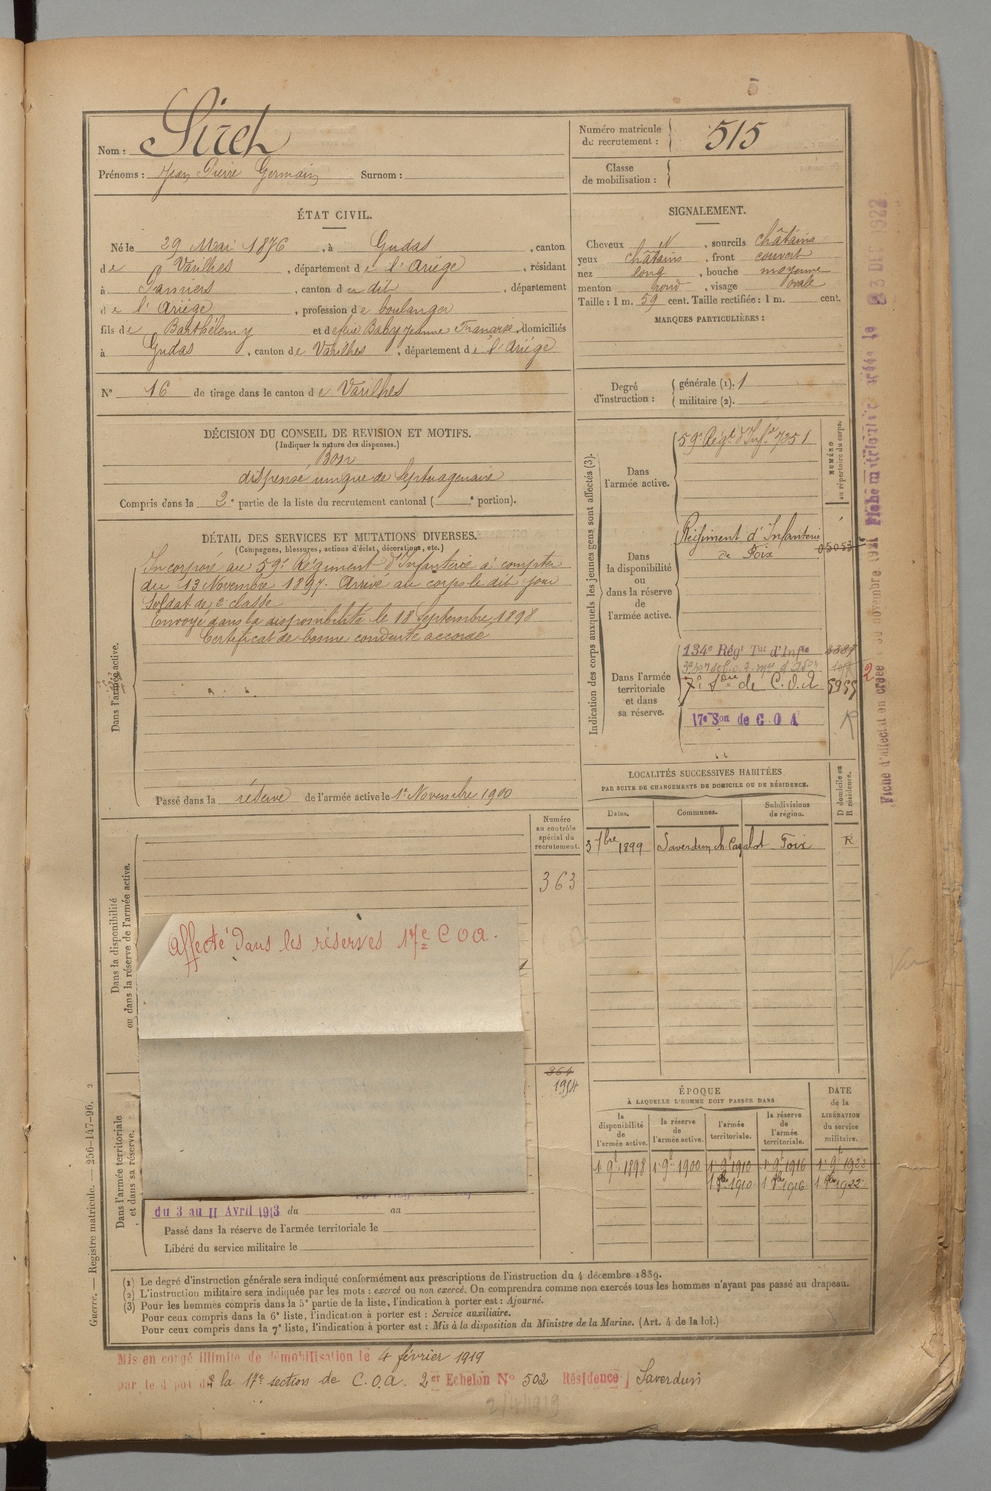 5
Nom : Sirch
Prénoms : Jean Pierre Germain Surnom :
Numéro matricule du recrutement : 515
Classe de mobilisation :
ÉTAT CIVIL.
Né le 29 Mai 1876, à Gudas, canton
de Varilhes, département de l'Ariège, résidant
à Pamiers, canton de dit, département
de l'Ariège, profession de boulanger
fils de Barthélemy et de feue Baby Jeanne Françoise, domiciliés
à Gudas, canton de Varilhes, département de l'Ariège
N° 16 de tirage dans le canton de Varilhes
SIGNALEMENT.
Cheveux N, sourcils châtains
yeux châtains, front couvert
nez long, bouche moyenne
menton rond, visage ovale
Taille : 1 m. 59 cent. Taille rectifiée : 1 m. cent.
MARQUES PARTICULIÈRES :
Degré d'instruction : générale (1). 1
militaire (2).
DÉCISION DU CONSEIL DE REVISION ET MOTIFS.
(Indiquer la nature des dispenses.)
Bon
dispensé unique de septuagénaire
Compris dans la 2e partie de la liste du recrutement cantonal ( e portion).
DÉTAIL DES SERVICES ET MUTATIONS DIVERSES.
(Campagnes, blessures, actions d'éclat, décorations, etc.)
Dans l'armée active.
Incorporé au 59e Régiment d'Infanterie à compter
du 13 Novembre 1897. Arrivé au corps le dit jour
Soldat de 2e classe
Envoyé dans la disponibilité le 18 Septembre 1898
Certificat de bonne conduite accordé
Passé dans la réserve de l'armée active le 1er Novembre 1900
Indication des corps auxquels les jeunes gens sont affectés (3).
NUMÉRO au répertoire du corps.
Dans l'armée active.
59e Régt d'Infie 7351
Dans la disponibilité ou dans la réserve de l'armée active.
Régiment d'Infanterie
de Foix
Dans l'armée territoriale et dans sa réserve.
134e Régt Tal d'Infie
de C.O.A 5955
17e Son de C O A R
2
LOCALITÉS SUCCESSIVES HABITÉES
PAR SUITE DE CHANGEMENTS DE DOMICILE OU DE RÉSIDENCE.
Dates. Communes. Subdivisions de région. D domicile ou R résidence.
3 7bre 1899 Saverdun Foix R
Dans la disponibilité ou dans la réserve de l'armée active.
Numéro au contrôle spécial du recrutement.
363
Affecté dans les réserves 17e C O A.
Dans l'armée territoriale et dans sa réserve.
364
1914
du 3 au 11 Avril 1913 du au
Passé dans la réserve de l'armée territoriale le
Libéré du service militaire le
ÉPOQUE
À LAQUELLE L'HOMME DOIT PASSER DANS
la disponibilité de l'armée active. la réserve de l'armée active. l'armée territoriale. la réserve de l'armée territoriale.
DATE de la LIBÉRATION du service militaire.
1 9e 1898 1 9e 1900 1 9e 1910 1 9e 1916 1 9e 1922
1910 1916 1922
(1) Le degré d'instruction générale sera indiqué conformément aux prescriptions de l'instruction du 4 décembre 1889.
(2) L'instruction militaire sera indiquée par les mots : exercé ou non exercé. On comprendra comme non exercés tous les hommes n'ayant pas passé au drapeau.
(3) Pour les hommes compris dans la 5e partie de la liste, l'indication à porter est : Ajourné.
Pour ceux compris dans la 6e liste, l'indication à porter est : Service auxiliaire.
Pour ceux compris dans la 7e liste, l'indication à porter est : Mis à la disposition du Ministre de la Marine. (Art. 4 de la loi.)
Guerre. — Registre matricule. — 256-147-96. 2
Mis en congé illimité de démobilisation le 4 février 1919
par le dépot de la 17e section de C.O.A. 2er Echelon N° 502 Résidence Saverdun